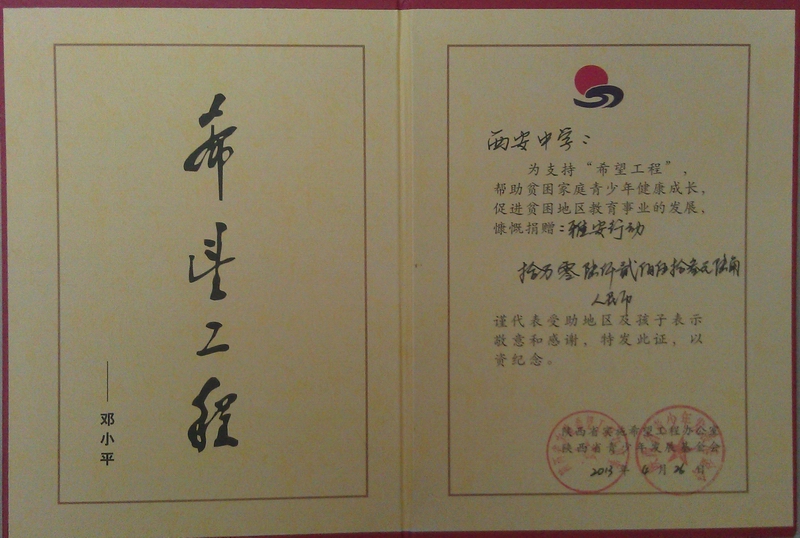 希望工程
——邓小平
西安中学：
为支持“希望工程”，
帮助贫困家庭青少年健康成长，
促进贫困地区教育事业的发展，
慷慨捐赠：雅安行动
拾万零陆仟贰佰伍拾叁元陆角
人民币
谨代表受助地区及孩子表示
敬意和感谢，特发此证，以
资纪念。
陕西省实施希望工程办公室
陕西省青少年发展基金会
2013年4月26日